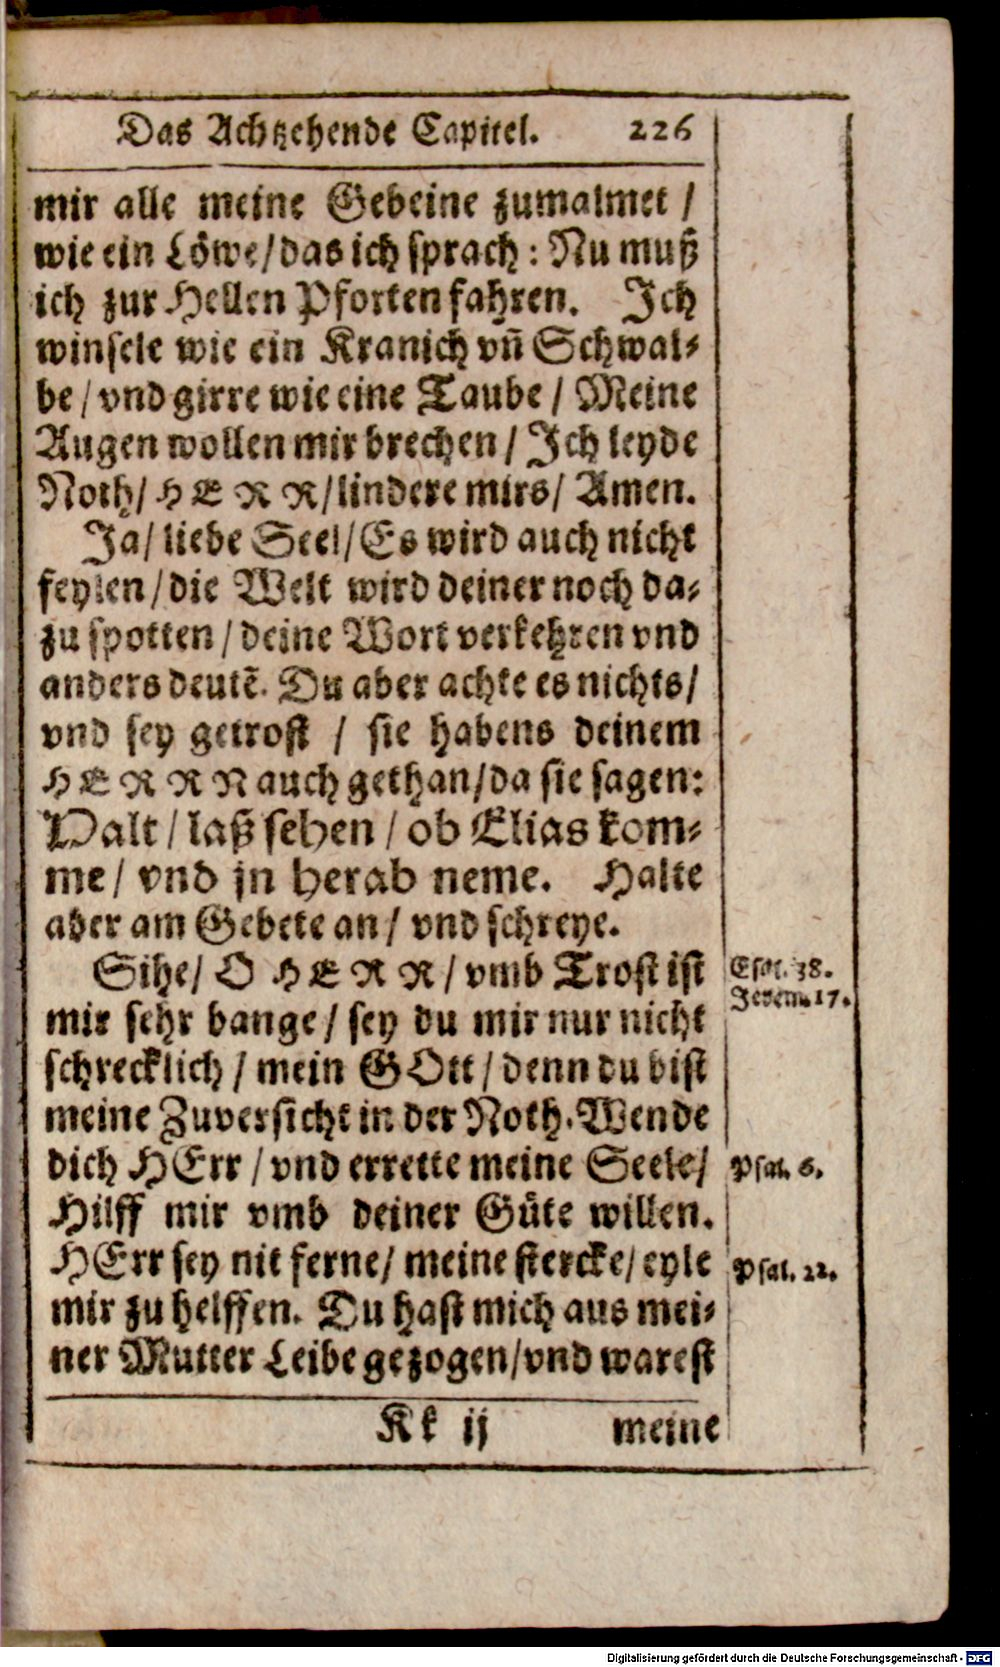 Das Achtzehende Capitel. 226
mir alle meine Gebeine zumalmet /
wie ein Löwe/das ich sprach : Nu muß
ich zur Hellen Pforten fahren. Ich
winsele wie ein Kranich vn̄ Schwal-
be / vnd girre wie eine Taube / Meine
Augen wollen mir brechen / Ich leyde
Noth/ HERR/lindere mirs/ Amen.
Ja/ liebe Seel/Es wird auch nicht
feylen/die Welt wird deiner noch da-
zu spotten / deine Wort verkehren vnd
anders deutē. Du aber achte es nichts/
vnd sey getrost / sie habens deinem
HERRN auch gethan/da sie sagen:
Halt / laß sehen / ob Elias kom-
me / vnd jn herab neme. Halte
aber am Gebete an / vnd schreye.
Sihe/ O HERR / vmb Trost ist
Esai. 38.
mir sehr bange / sey du mir nur nicht
Jerem. 17.
schrecklich / mein GOtt / denn du bist
meine Zuversicht in der Noth. Wende
dich HErr / vnd errette meine Seele/
Psal. 6.
Hilff mir vmb deiner Güte willen.
HErr sey nit ferne/ meine stercke/ eyle
Psal. 22.
mir zu helffen. Du hast mich aus mei-
ner Mutter Leibe gezogen/vnd warest
Kk ij meine
Digitalisierung gefördert durch die Deutsche Forschungsgemeinschaft - DFG